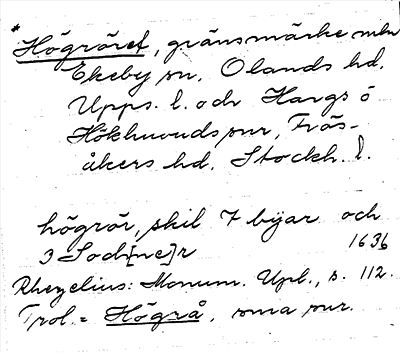 * Högröret, gränsmärke mln
Ekeby sn, Olands hd,
Upps. l. och Hargs o
Hökhuvuds snr, Frös-
åkers hd, Stockh. l.
högrör, skil 7 byar och
3 Sock[ne]r 1636
Rhezelius: Monum. Upl., s. 112.
Trol. = Högrå, sma snr.